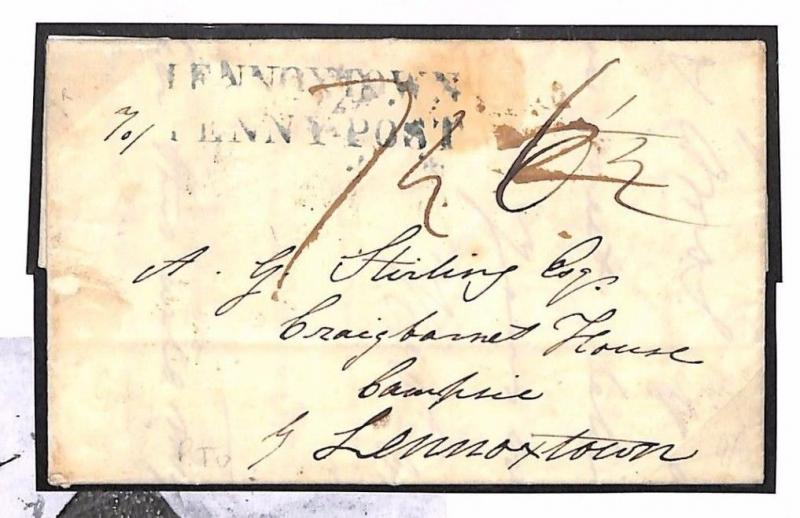 LENNOXTOWN
PENNY POST
7½ 6½
A. G. Stirling Esq.
Craigbarnet House
Campsie
by Lennoxtown
P.T.O